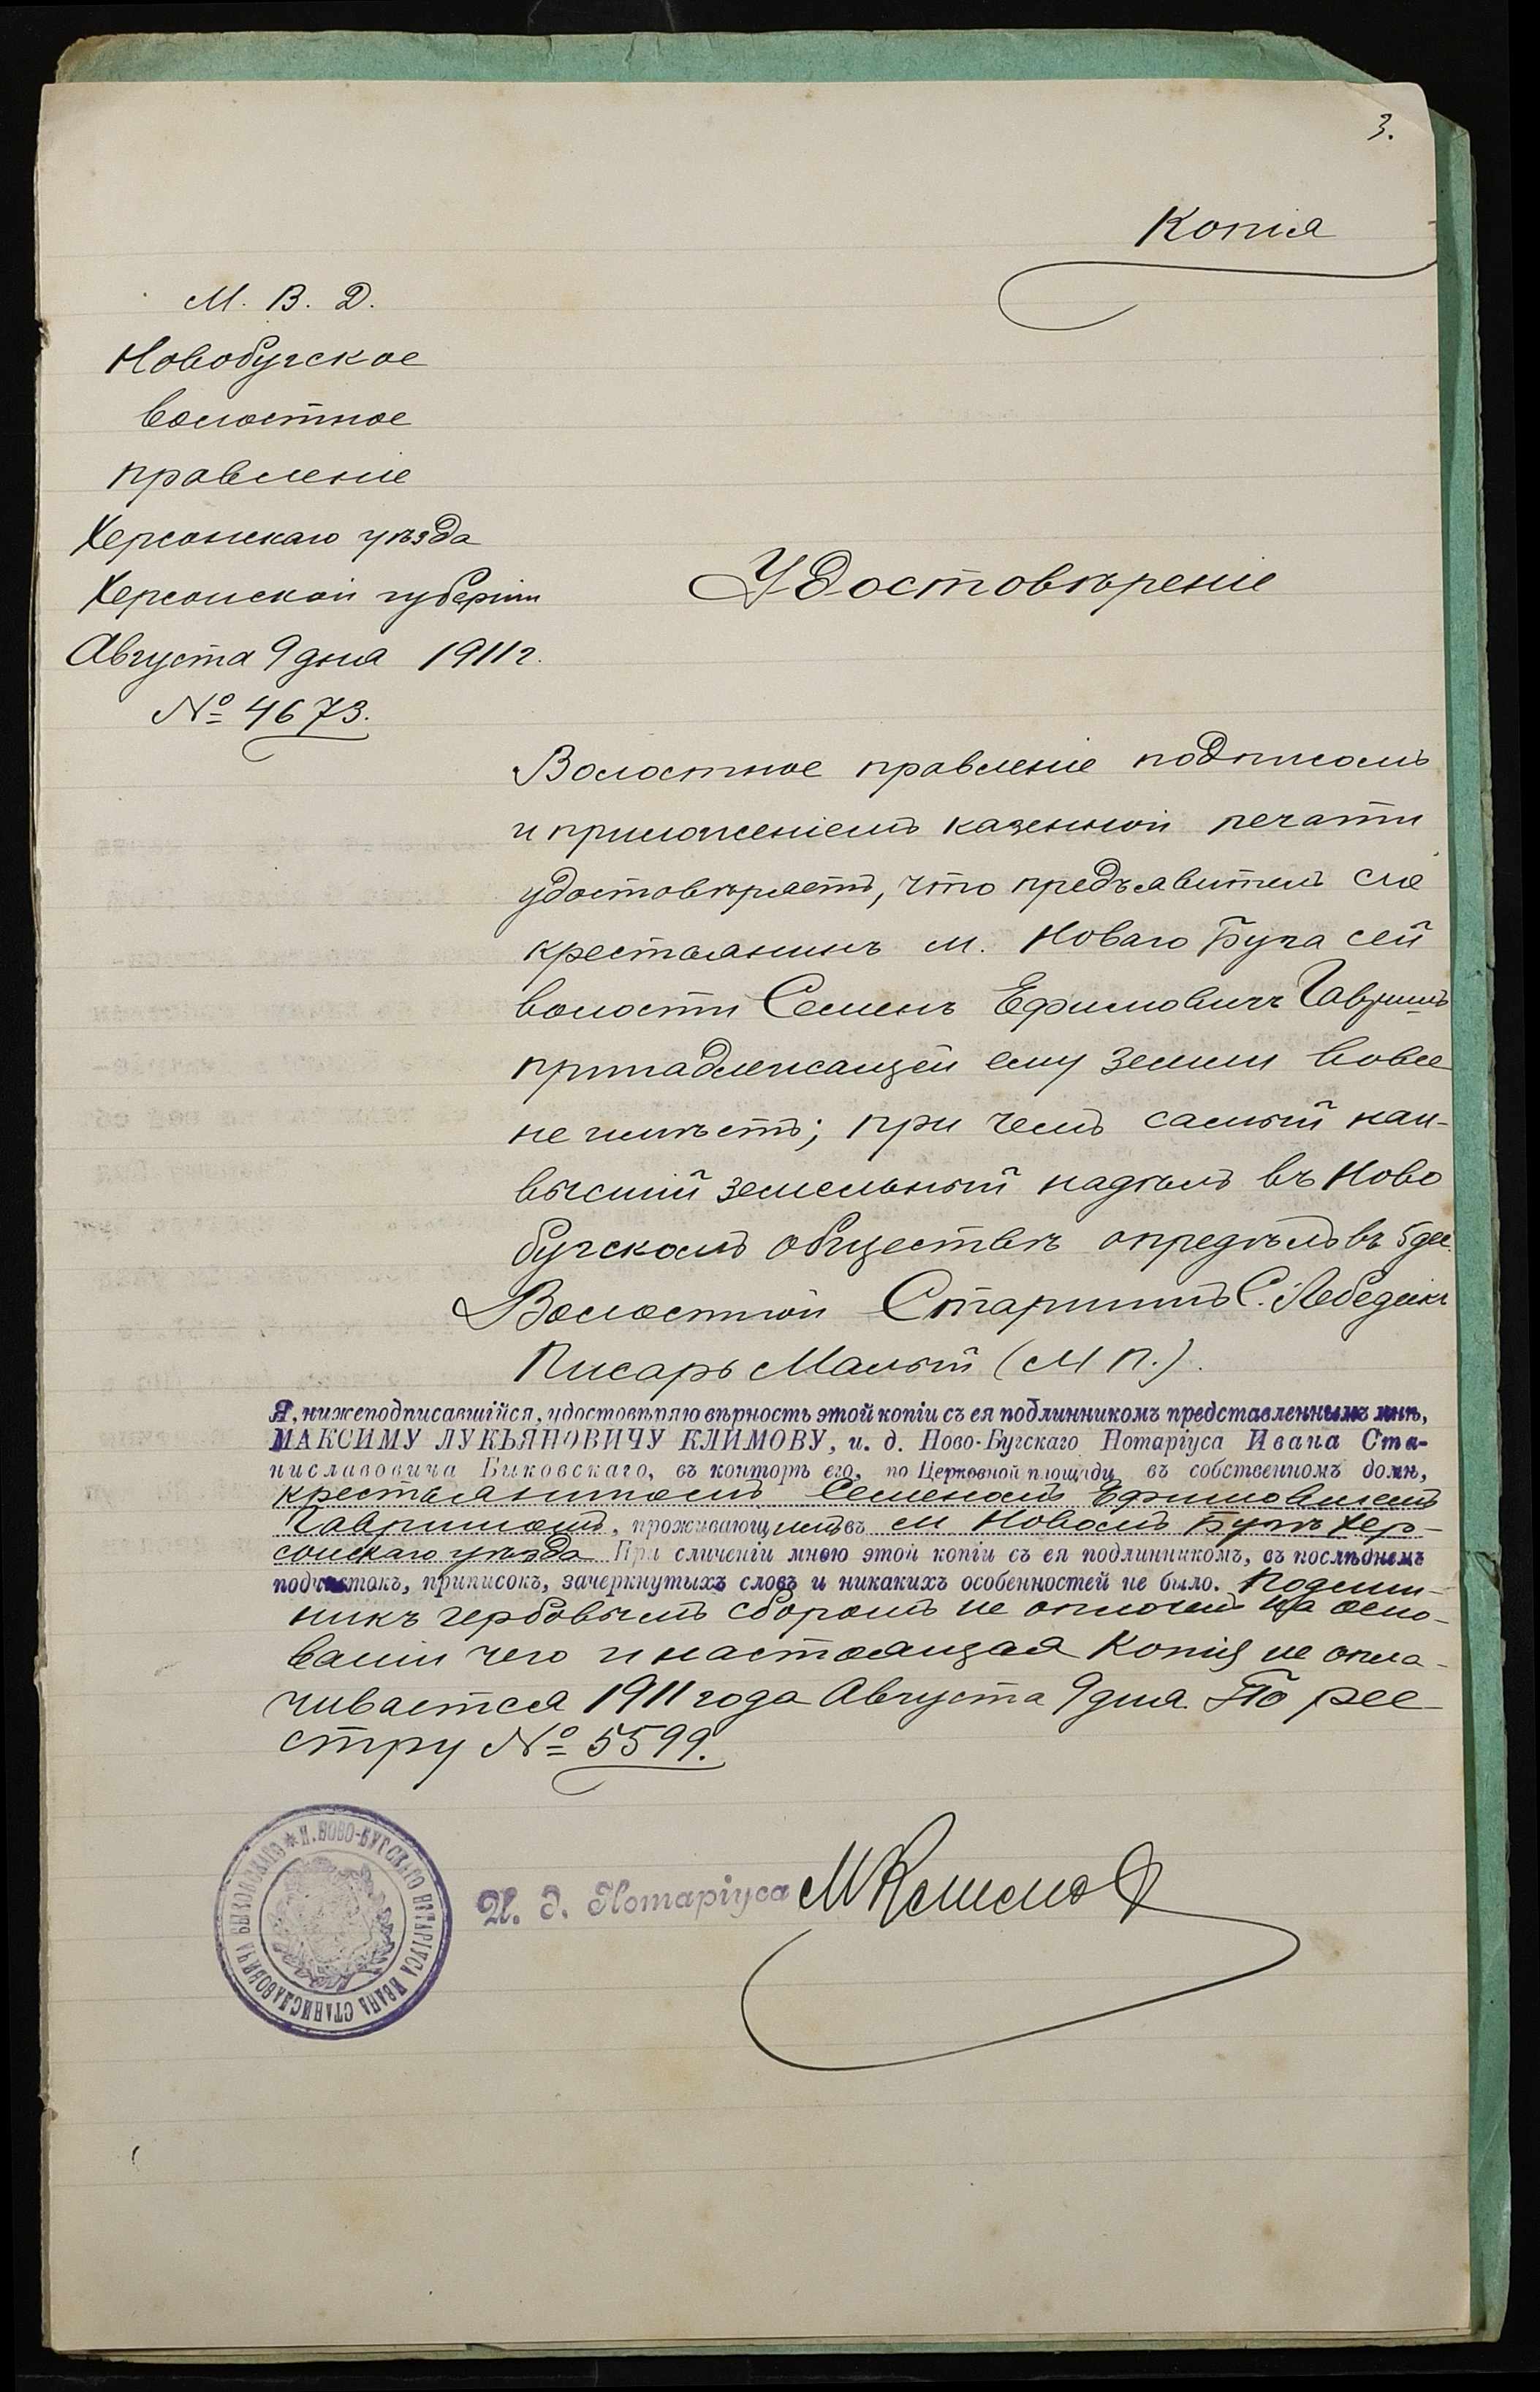 3.
Копія
М. В. Д.
Новобугское
волостное
правленіе
Херсонскаго уѣзда
Херсонской губерніи
Августа 9 дня 1911 г.
№ 4673.
Удостовѣреніе
Волостное правленіе подписомъ
и приложеніемъ казенной печати
удостовѣряетъ, что предъявитель сіе
крестьянинъ м. Новаго Буга сей
волости Семенъ Ефимовичъ Гавришъ
принадлежащей ему земли вовсе
не имѣетъ; при чемъ самый наи-
высшій земельный надѣлъ въ Ново
бугскомъ обществѣ опредѣлъ въ 5 дес.
Волостной Старшина С. Лебедик
Писарь Малый (М П.).
Я, нижеподписавшійся, удостовѣряю вѣрность этой копіи съ ея подлинникомъ представленнымъ мнѣ,
МАКСИМУ ЛУКЬЯНОВИЧУ КЛИМОВУ, и. д. Ново-Бугскаго Нотаріуса Ивана Ста-
ниславовича Быковскаго, въ конторѣ его, по Церковной площади въ собственномъ домѣ,
крестьяниномъ Семеномъ Ефимовичемъ
Гавришомъ, проживающимъ въ м Новомъ Бугѣ Хер-
сонскаго уѣзда При сличеніи мною этой копіи съ ея подлинникомъ, въ послѣднемъ
подчистокъ, приписокъ, зачеркнутыхъ словъ и никакихъ особенностей не было. Подлин-
никъ гербовымъ сборомъ не оплочен на осно-
ваніи чего и настоящая копія не опла-
чивается 1911 года Августа 9 дня. По рее-
стру № 5599.
И. д. Нотаріуса МКлимов
* Н. НОВО-БУГСКАГО НОТАРІУСА ИВАНА СТАНИСЛАВОВИЧА БЫКОВСКАГО